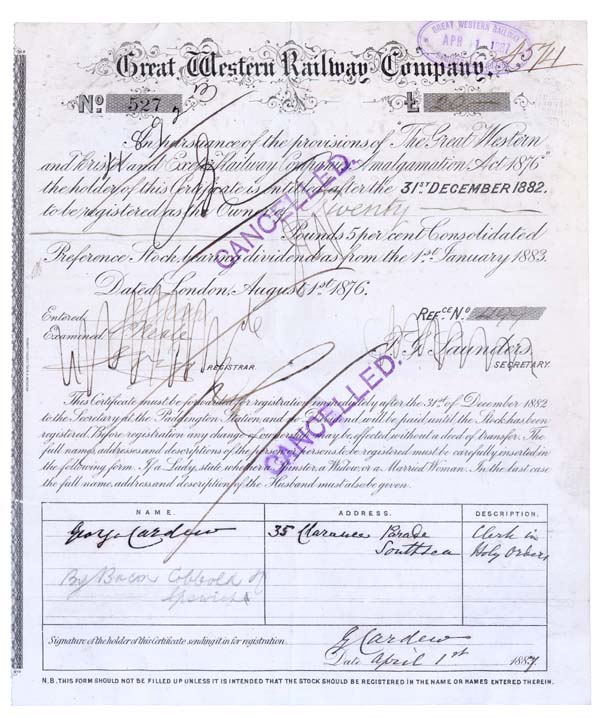 GREAT WESTERN RAILWAY
APR 1 1887
Great Western Railway Company.
No. 527
£ 20
In pursuance of the provisions of "The Great Western
and Bristol and Exeter Railway Companies Amalgamation Act 1876"
the holder of this Certificate is entitled after the 31ST DECEMBER 1882.
to be registered as the Owner of Twenty
Pounds 5 per cent Consolidated
Preference Stock, carrying dividend as from the 1st January 1883.
Dated London, August 1st 1876.
CANCELLED.
Entered,
Examined,
REFCE No
REGISTRAR.
F. G. Saunders.
SECRETARY.
CANCELLED.
This Certificate must be forwarded for registration immediately after the 31st of December 1882
to the Secretary at the Paddington Station, and no Dividend will be paid until the Stock has been
registered. Before registration any change of ownership may be effected without a deed of transfer. The
full names, addresses and descriptions of the person or persons to be registered must be carefully inserted in
the following form. If a Lady, state whether a Spinster, a Widow, or a Married Woman. In the last case
the full name, address, and description of the Husband must also be given.
NAME. ADDRESS. DESCRIPTION.
George Cardew 35 Clarence Parade Clerk in
Southsea Holy Orders
By Bacon Cobbold of
Ipswich
Signature of the holder of this Certificate sending it in for registration.
G Cardew
Date April 1st 1887.
N.B. THIS FORM SHOULD NOT BE FILLED UP UNLESS IT IS INTENDED THAT THE STOCK SHOULD BE REGISTERED IN THE NAME OR NAMES ENTERED THEREIN.